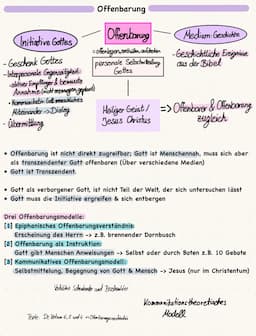 Offenbarung
Initiative Gottes
Offenbarung
Medium Geschichte
= offenlegen, enthüllen, aufdecken
personale Selbstmitteilung
Gottes
- Geschenk Gottes
- Interpersonale Gegenseitigkeit
aktiver Empfänger & bewusste
Annahme (nicht erzwungen, geglaubt)
- Kommunikation Gott menschliches
Miteinander → Dialog
- Übermittlung
- Geschichtliche Ereignisse
aus der Bibel
Heiliger Geist /
Jesus Christus
=> Offenbarer & Offenbarung
zugleich
• Offenbarung ist nicht direkt zugreifbar; Gott ist Menschennah, muss sich aber
als transzendenter Gott offenbaren (Über verschiedene Medien)
• Gott ist Transzendent.
• Gott als verborgener Gott, ist nicht Teil der Welt, der sich untersuchen lässt
• Gott muss die Initiative ergreifen & sich entbergen
Drei Offenbarungsmodelle:
[1] Epiphanisches Offenbarungsverständnis:
Erscheinung des Herrn -> z.B. brennender Dornbusch
[2] Offenbarung als Instruktion:
Gott gibt Menschen Anweisungen -> Selbst oder durch Boten z.B. 10 Gebote
[3] Kommunikatives Offenbarungsmodell:
Selbstmitteilung, Begegnung von Gott & Mensch -> Jesus (nur im Christentum)
Kommunikationstheoretisches
Modell